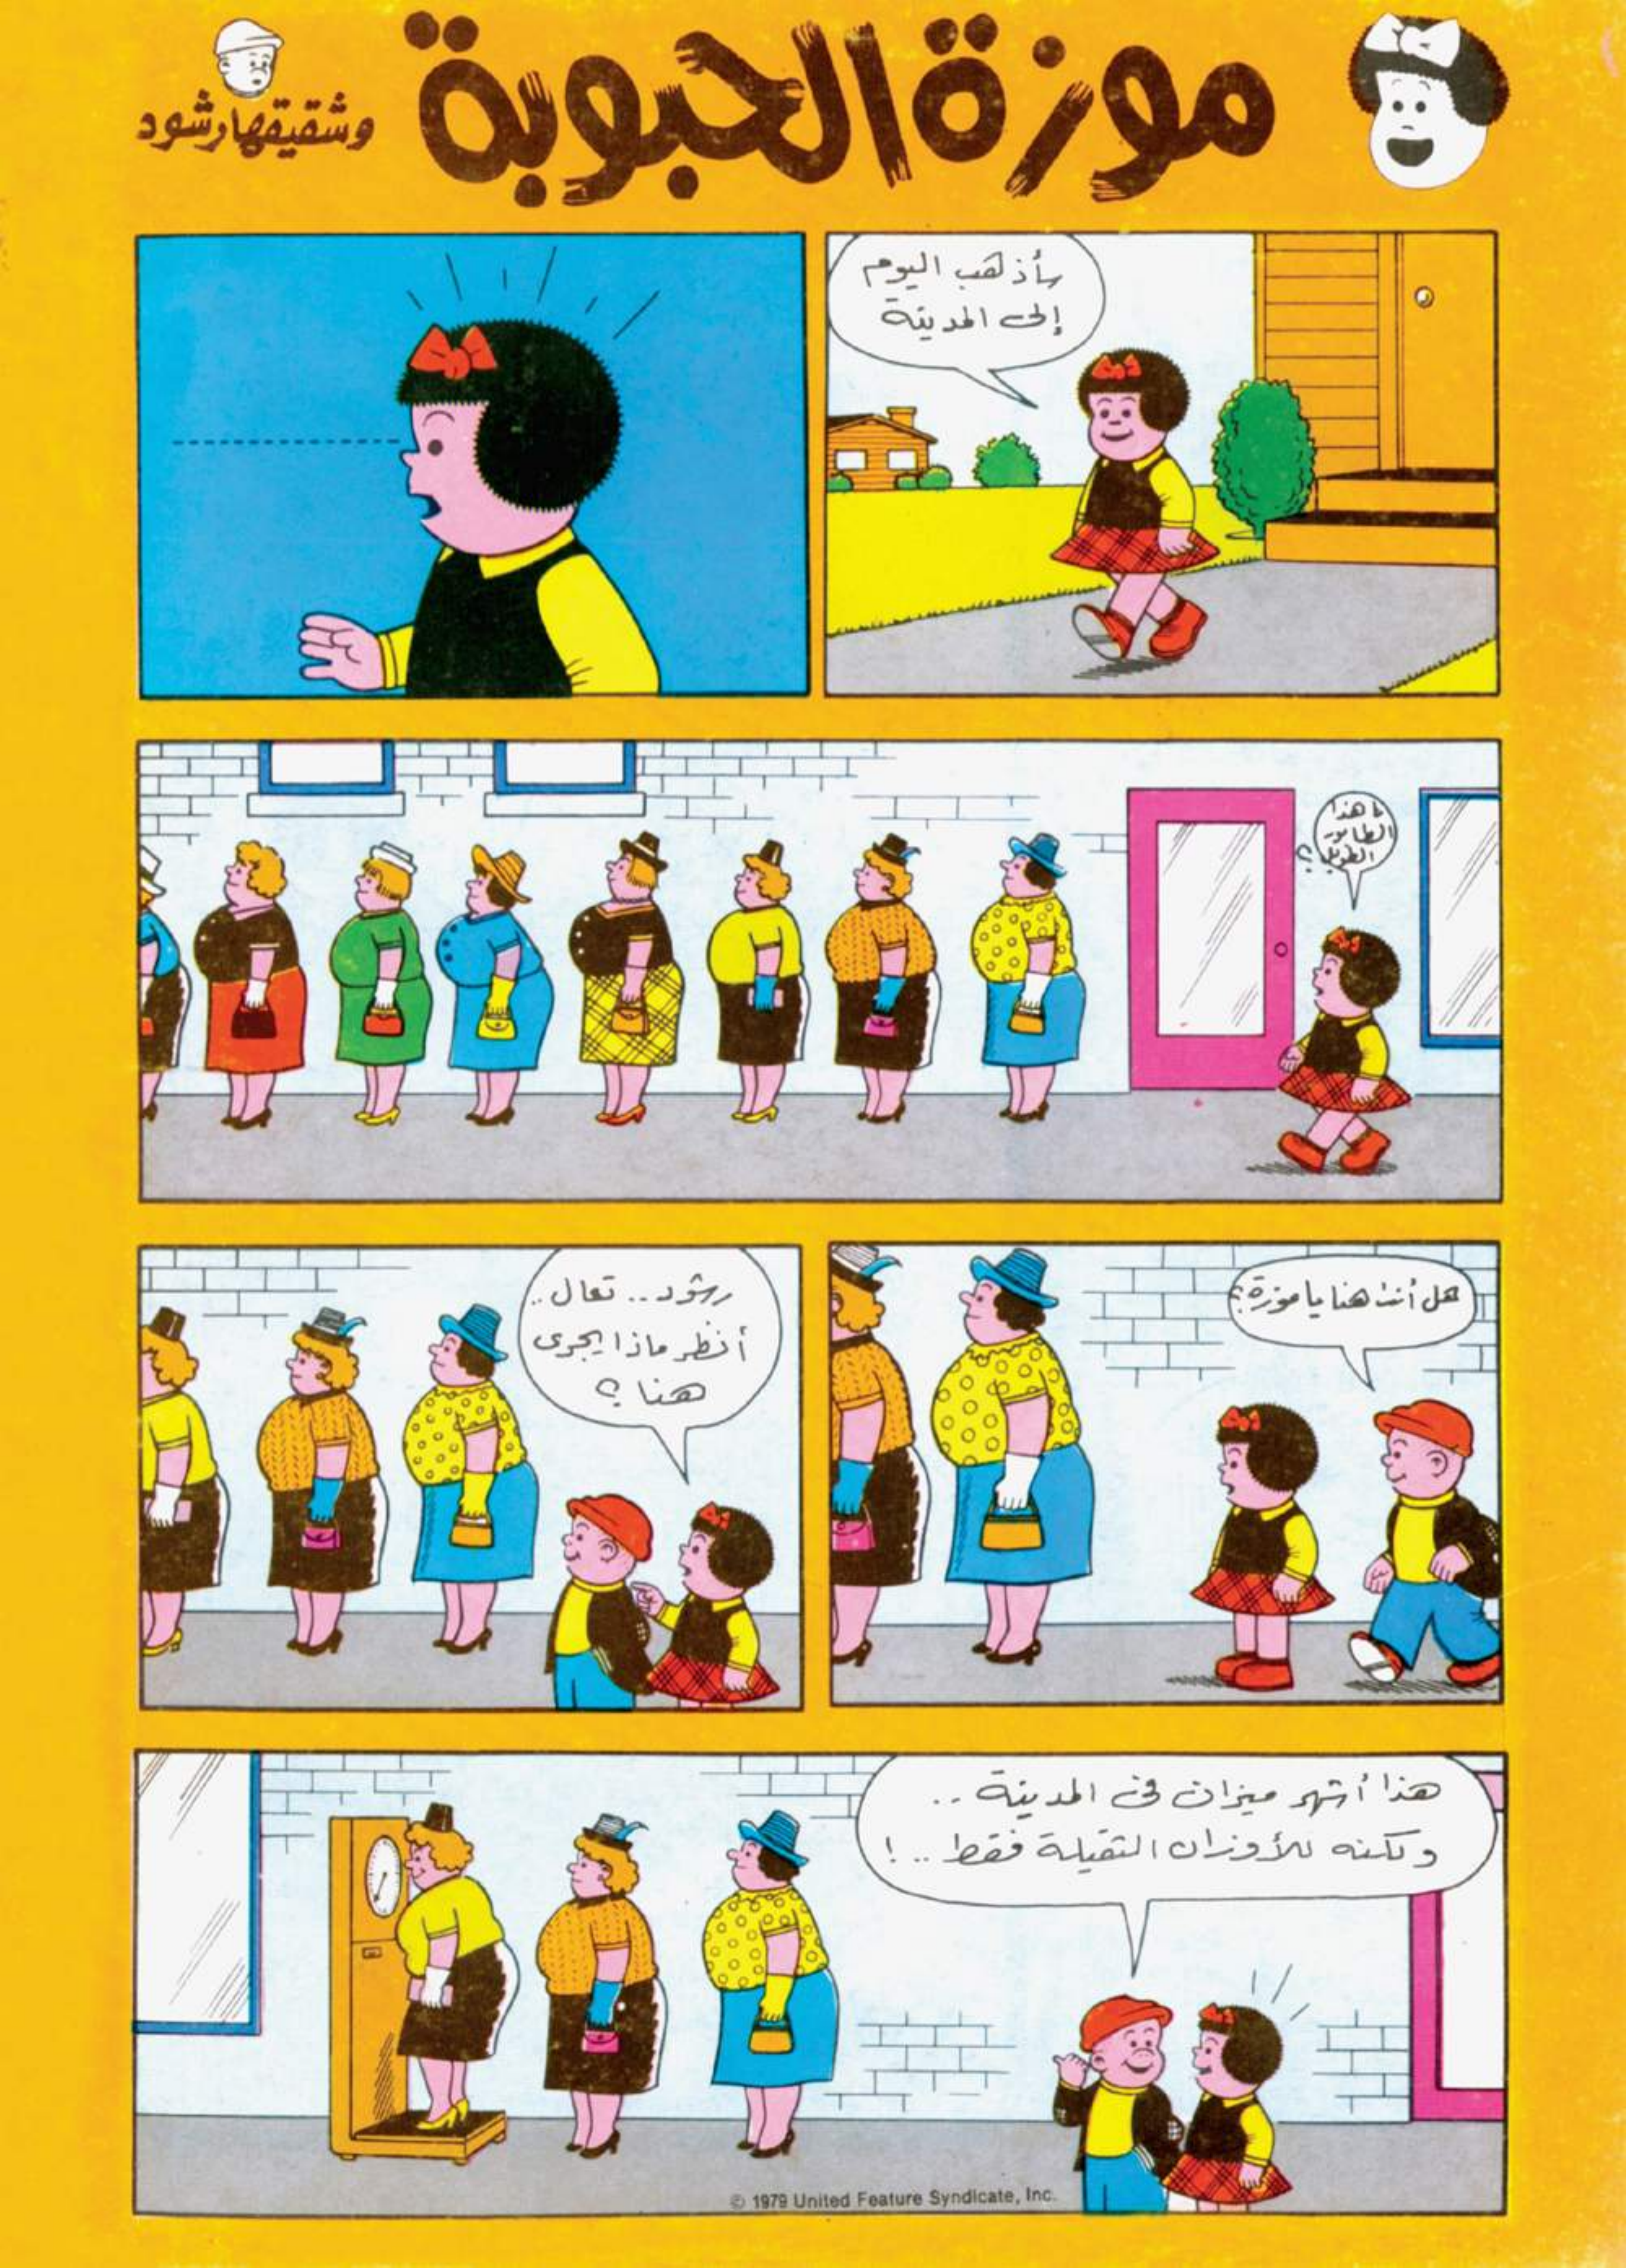 موزة الحبوبة
وشقيقها رشود
سأذهب اليوم
إلى المدينة
ما هذا
الطابور
الطويل؟
هل أنت هنا يا موزة؟
رشود.. تعال..
أنظر ماذا يجرى
هنا؟
هذا أشهر ميزان فى المدينة..
ولكنه للأوزان الثقيلة فقط..!
© 1979 United Feature Syndicate, Inc.